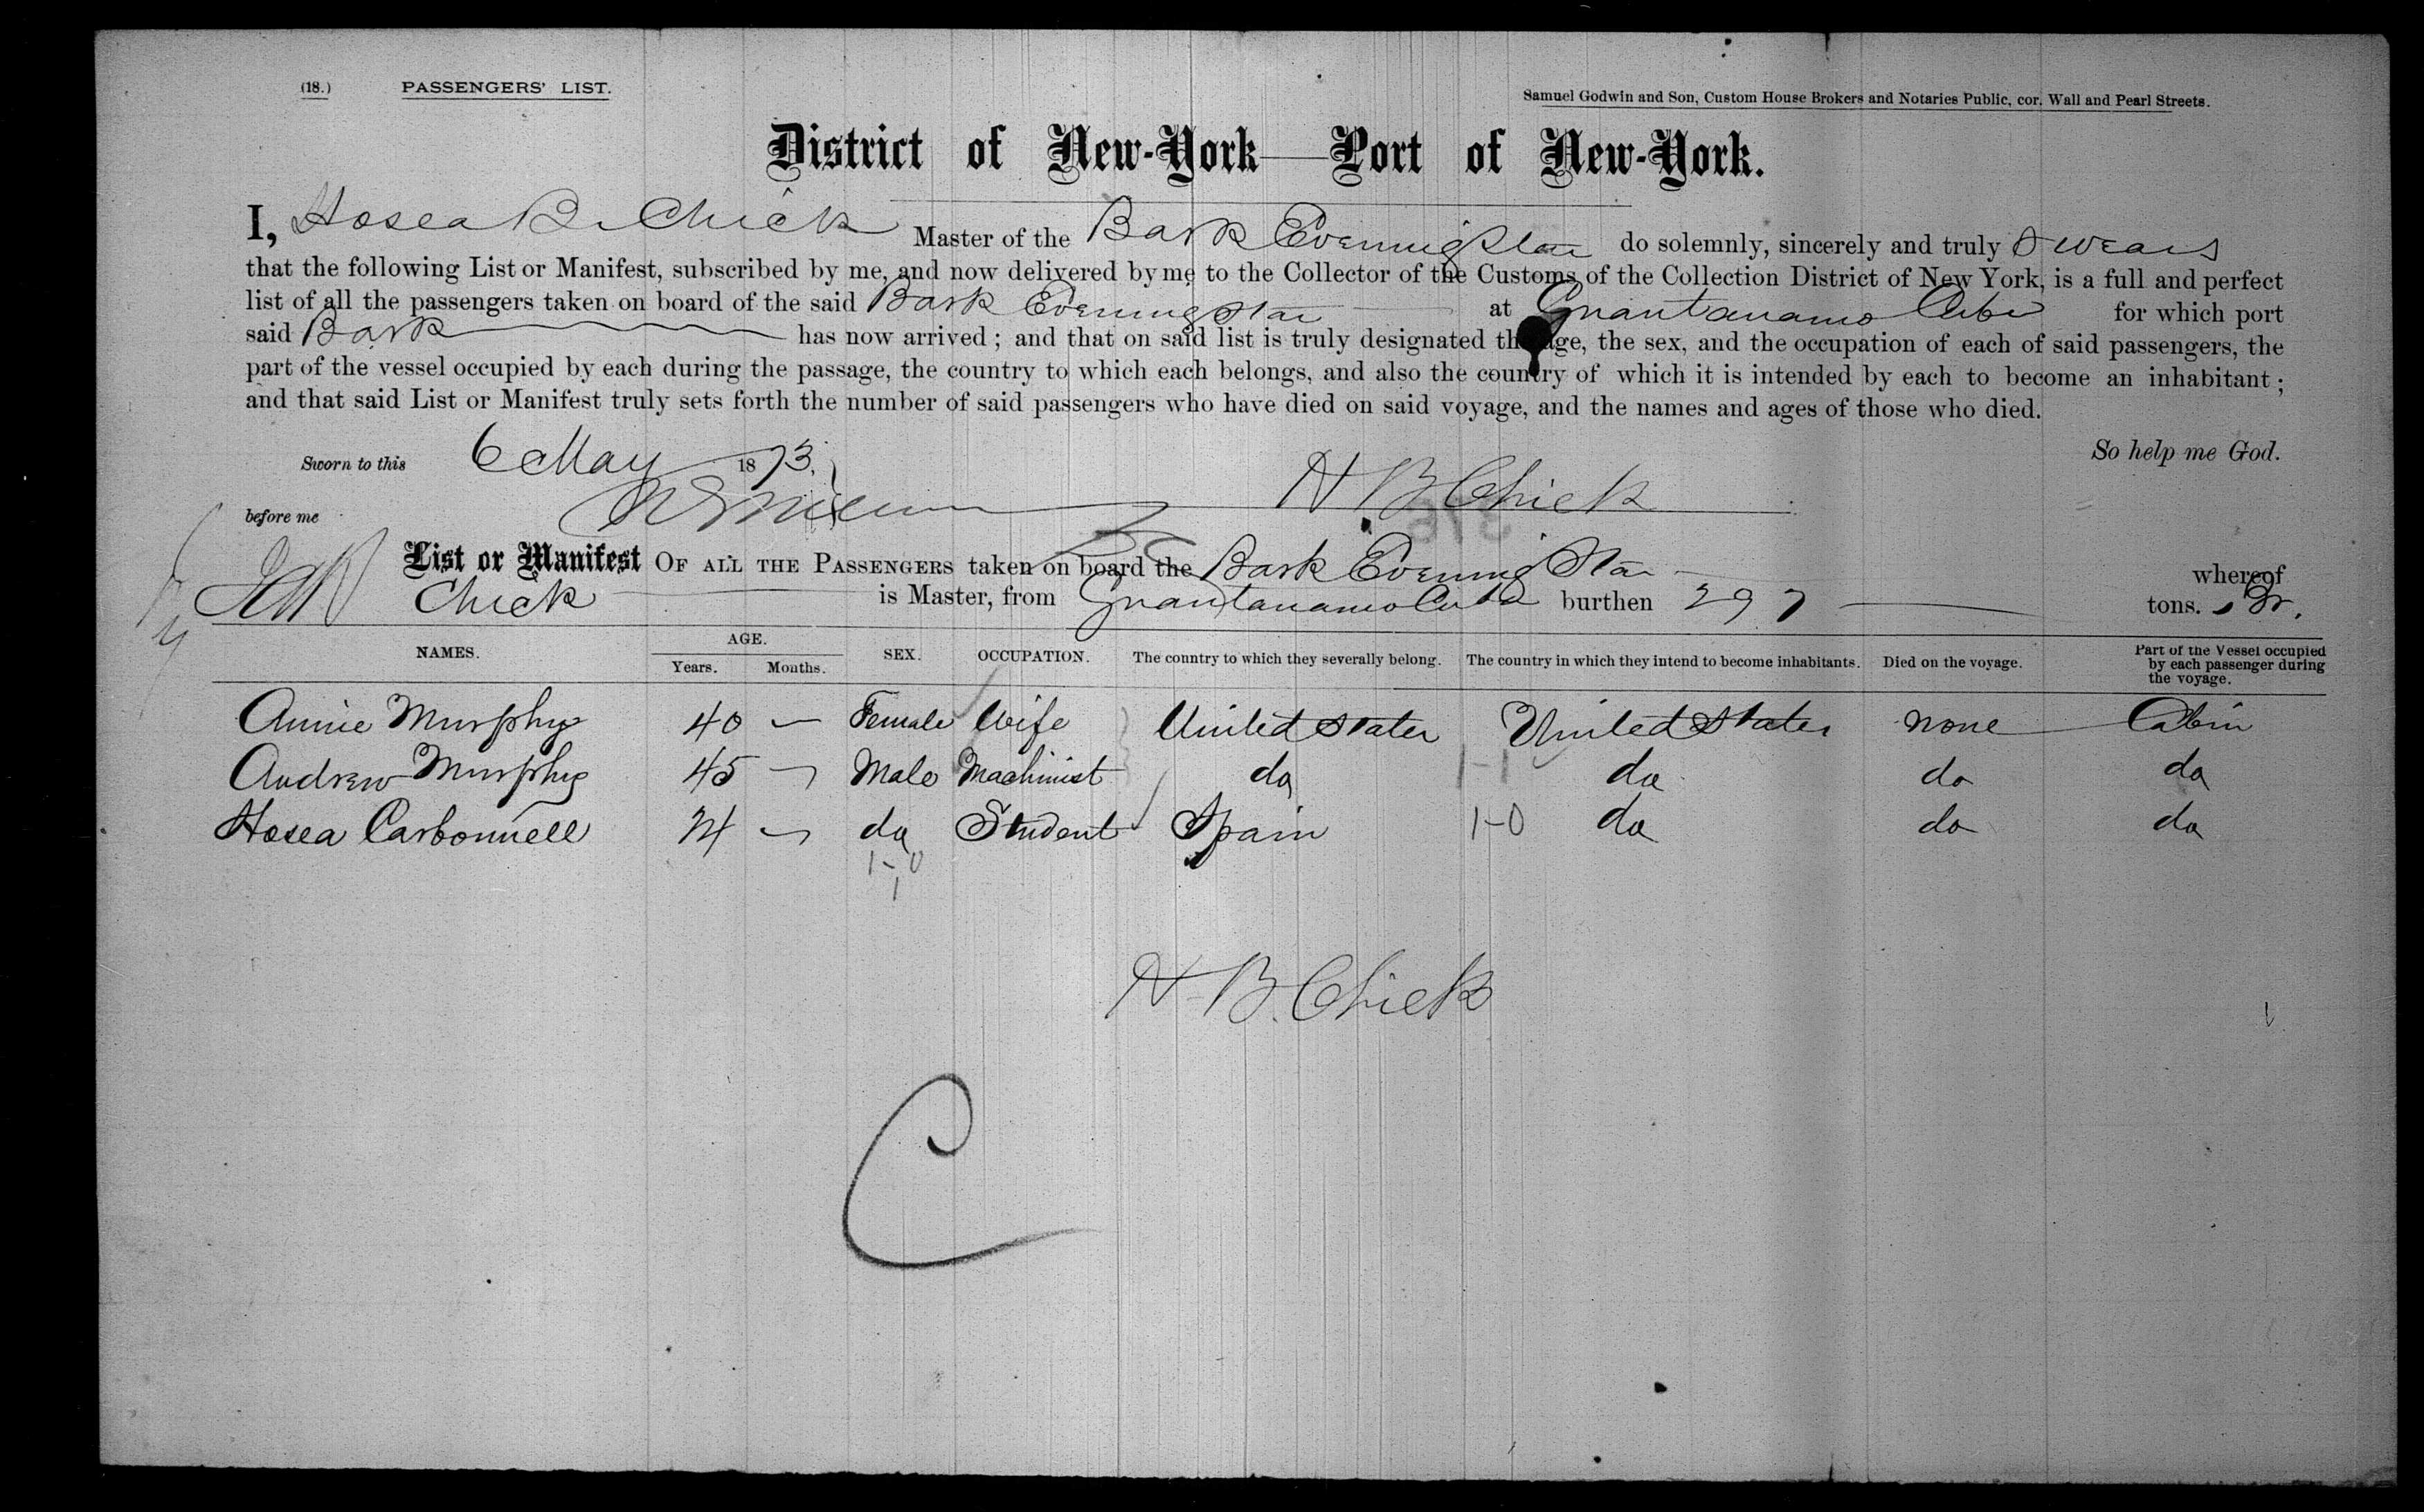 (18.) PASSENGERS' LIST. Samuel Godwin and Son, Custom House Brokers and Notaries Public, cor. Wall and Pearl Streets.
District of New-York—Port of New-York.
I, Hosea B. Chick Master of the Bark Evening Star do solemnly, sincerely and truly swears
that the following List or Manifest, subscribed by me, and now delivered by me to the Collector of the Customs of the Collection District of New York, is a full and perfect
list of all the passengers taken on board of the said Bark Evening Star at Guantanamo Cuba for which port
said Bark has now arrived; and that on said list is truly designated the age, the sex, and the occupation of each of said passengers, the
part of the vessel occupied by each during the passage, the country to which each belongs, and also the country of which it is intended by each to become an inhabitant;
and that said List or Manifest truly sets forth the number of said passengers who have died on said voyage, and the names and ages of those who died.
So help me God.
Sworn to this 6 May 1873.
H B Chick
before me
List or Manifest OF ALL THE PASSENGERS taken on board the Bark Evening Star whereof
Chick is Master, from Guantanamo Cuba burthen 297 tons.
NAMES. AGE. Years. Months. SEX. OCCUPATION. The country to which they severally belong. The country in which they intend to become inhabitants. Died on the voyage. Part of the Vessel occupied by each passenger during the voyage.
Annie Murphy 40 — Female Wife United States United States none Cabin
Andrew Murphy 45 — Male Machinist do 1-1 do do do
Hosea Carbonnell 24 — do Student Spain 1-0 do do do
1-0
1
H B. Chick
C